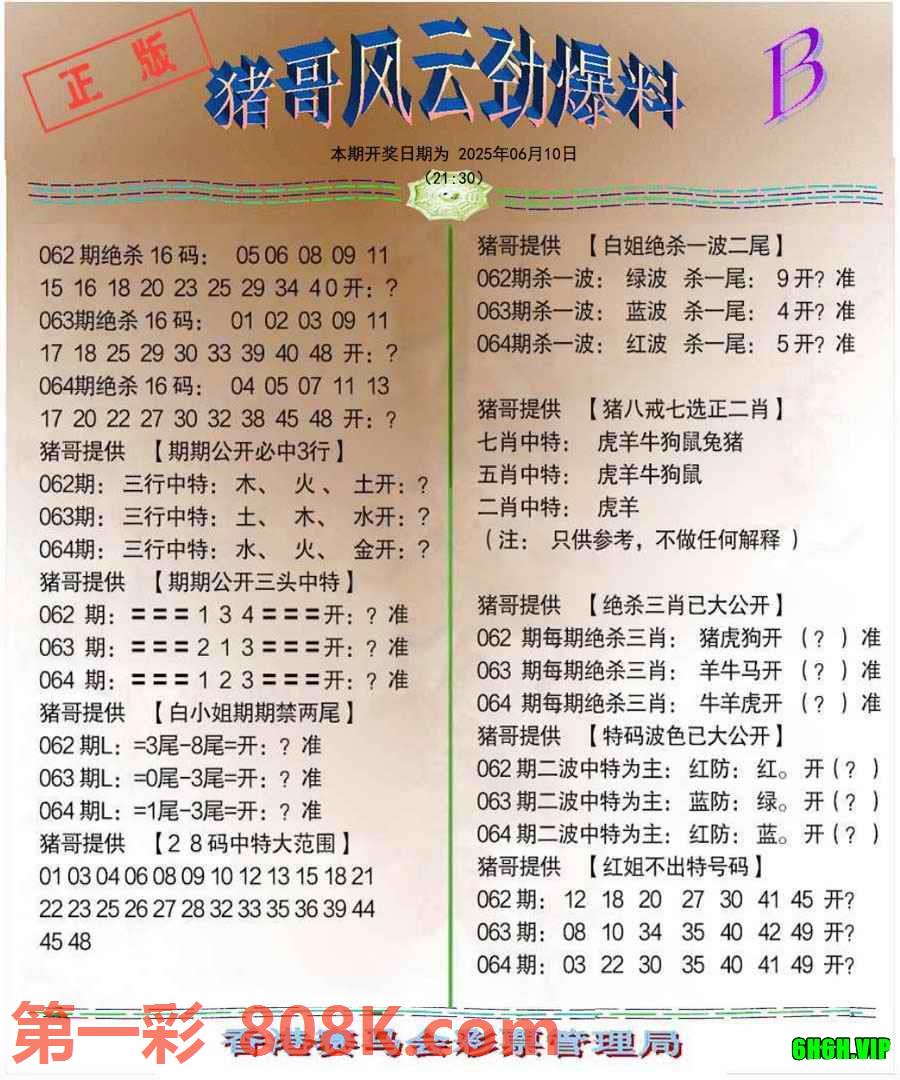 正版
猪哥风云劲爆料
B
本期开奖日期为 2025年06月10日
(21:30)
062期绝杀16码： 05 06 08 09 11
15 16 18 20 23 25 29 34 40开：?
063期绝杀16码： 01 02 03 09 11
17 18 25 29 30 33 39 40 48 开：?
064期绝杀16码： 04 05 07 11 13
17 20 22 27 30 32 38 45 48 开：?
猪哥提供 【期期公开必中3行】
062期： 三行中特： 木、 火 、 土开：?
063期： 三行中特： 土、 木、 水开：?
064期： 三行中特： 水、 火、 金开：?
猪哥提供 【期期公开三头中特】
062 期：===1 3 4===开：? 准
063 期：===2 1 3===开：? 准
064 期：===1 2 3===开：? 准
猪哥提供 【白小姐期期禁两尾】
062期L：=3尾-8尾=开：? 准
063期L：=0尾-3尾=开：? 准
064期L：=1尾-3尾=开：? 准
猪哥提供 【28码中特大范围】
01 03 04 06 08 09 10 12 13 15 18 21
22 23 25 26 27 28 32 33 35 36 39 44
45 48
猪哥提供 【白姐绝杀一波二尾】
062期杀一波： 绿波 杀一尾： 9开? 准
063期杀一波： 蓝波 杀一尾： 4开? 准
064期杀一波： 红波 杀一尾： 5开? 准
猪哥提供 【猪八戒七选正二肖】
七肖中特： 虎羊牛狗鼠兔猪
五肖中特： 虎羊牛狗鼠
二肖中特： 虎羊
（注： 只供参考，不做任何解释 ）
猪哥提供 【绝杀三肖已大公开】
062 期每期绝杀三肖： 猪虎狗开 （? ）准
063 期每期绝杀三肖： 羊牛马开 （? ）准
064 期每期绝杀三肖： 牛羊虎开 （? ）准
猪哥提供 【特码波色已大公开】
062期二波中特为主：红防：红。开(? )
063期二波中特为主：蓝防：绿。开(? )
064期二波中特为主：红防：蓝。开(? )
猪哥提供 【红姐不出特号码】
062期： 12 18 20 27 30 41 45 开?
063期： 08 10 34 35 40 42 49 开?
064期： 03 22 30 35 40 41 49 开?
第一彩 808K.com
香港赛马会彩票管理局
6H6H.VIP